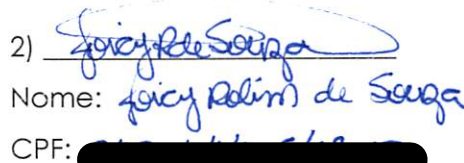 2) Joicy R de Souza
Nome: Joicy Rolim de Souza
CPF: